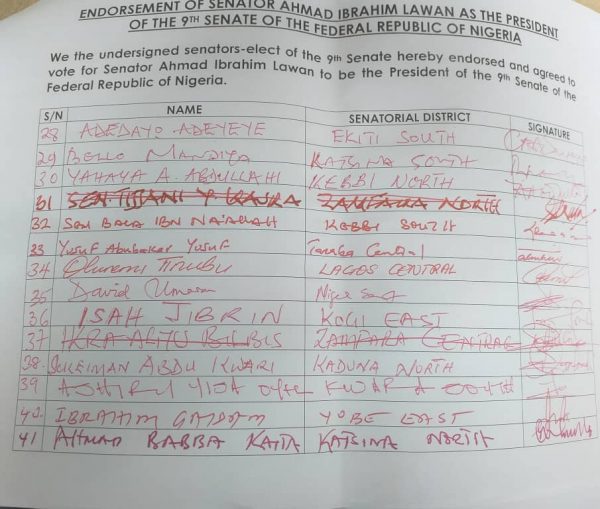 ENDORSEMENT OF SENATOR AHMAD IBRAHIM LAWAN AS THE PRESIDENT
OF THE 9TH SENATE OF THE FEDERAL REPUBLIC OF NIGERIA
We the undersigned senators-elect of the 9th Senate hereby endorsed and agreed to
vote for Senator Ahmad Ibrahim Lawan to be the President of the 9th Senate of the
Federal Republic of Nigeria.
S/N NAME SENATORIAL DISTRICT SIGNATURE
28 ADEDAYO ADEYEYE EKITI SOUTH
29 BELLO MANDIYA KATSINA SOUTH
30 YAHAYA A. ABDULLAHI KEBBI NORTH
31 SEN TIJJANI Y. KAURA ZAMFARA NORTH
32 SEN BALA IBN NA'ALLAH KEBBI SOUTH
33 Yusuf Abubakar Yusuf Taraba Central
34 Oluremi Tinubu LAGOS CENTRAL
35 David Umaru Niger
36 ISAH JIBRIN KOGI EAST
37 ZAMFARA CENTRAL
38 SULEIMAN ABDU KWARI KADUNA NORTH
39 KWARA SOUTH
40 IBRAHIM GAIDAM YOBE EAST
41 AHMAD BABBA KAITA KATSINA NORTH